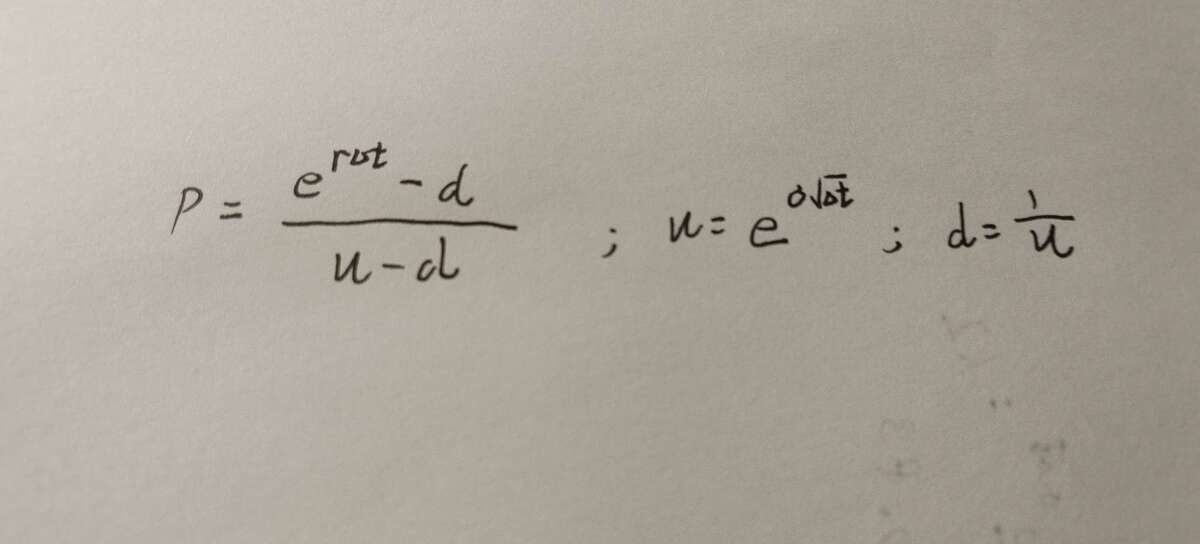 P = (e^{rΔt} - d) / (u - d) ; u = e^{σ√Δt} ; d = 1/u